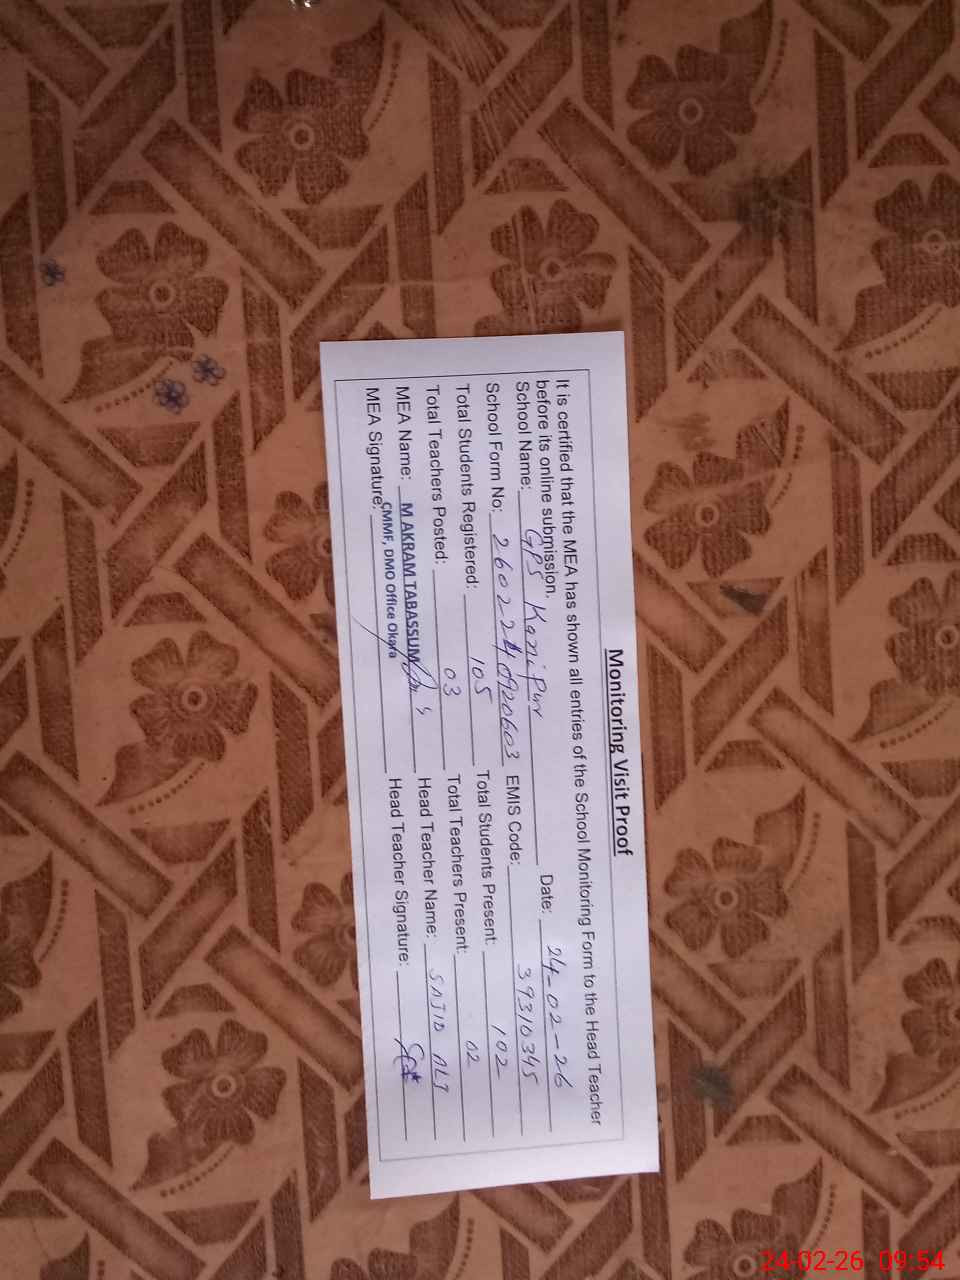 Monitoring Visit Proof
It is certified that the MEA has shown all entries of the School Monitoring Form to the Head Teacher
before its online submission.
School Name: GPS Kanipur Date: 24-02-26
School Form No: 2602240920603 EMIS Code: 39310345
Total Students Registered: 105 Total Students Present: 102
Total Teachers Posted: 03 Total Teachers Present: 02
MEA Name: M AKRAM TABASSUM Head Teacher Name: SAJID ALI
CMMF, DMO Office Okara
MEA Signature: Head Teacher Signature:
24-02-26 09:54